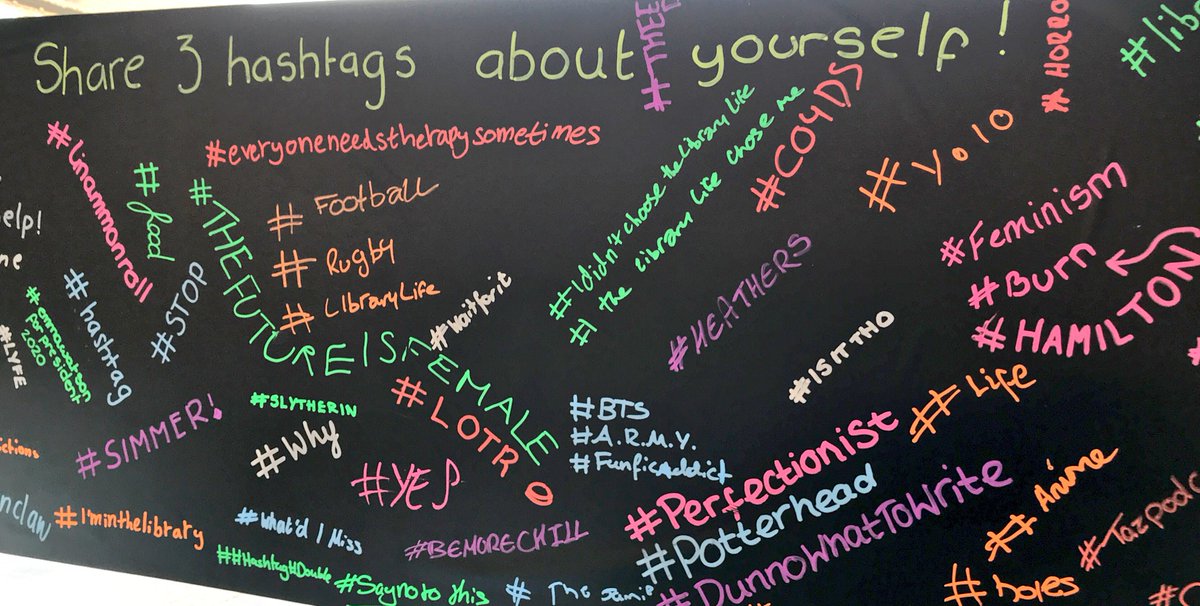 Share 3 hashtags about yourself!
#linammanroll
#everyoneneedstherapysometimes
#food
#THEFUTUREISFEMALE
# Football
# Rugby
# LIbraryLife
#Ididn't choose the library life
#I the library life chose me
#CO4DS
#Yolo
#HORRO
#libr
#THEE
elp!
ne
#LYFE
#emmawatson
for president
2020
#hashtag
#STOP
#waitforit
#HEATHERS
#ISITTHO
#Feminism
#Burn
#HAMILTON
#SIMMER!
#SLYTHERIN
#Why
#LOTR
#YES
#BTS
#A.R.M.Y.
#Funficaddict
#Life
#Perfectionist
#Potterhead
#DunnoWhatToWrite
#Anime
#Tazpodc
ctions
nclaw
#I'minthelibrary
#What'd I Miss
##HashtagHDouble
#BEMORECHILL
#Saynoto this
# The Jamie